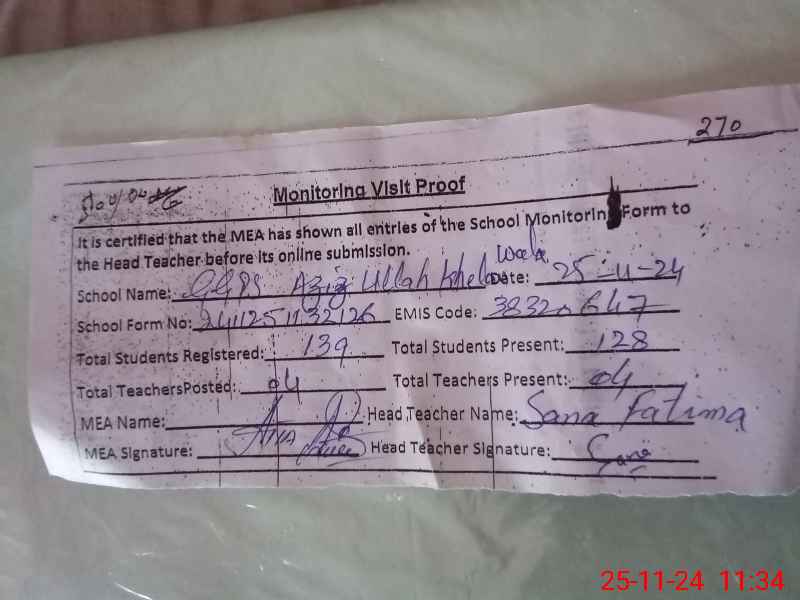 270
Monitoring Visit Proof
It is certified that the MEA has shown all entries of the School Monitorin Form to
the Head Teacher before its online submission.
School Name: GGPS Aziz Ullah Khel Wala Date: 25-11-24
School Form No: 2411251132126 EMIS Code:
Total Students Registered: 139 Total Students Present: 128
Total TeachersPosted: 04 Total Teachers Present: 04
MEA Name: Head Teacher Name: Sana Fatima
MEA Signature: Head Teacher Signature: Sana
25-11-24 11:34